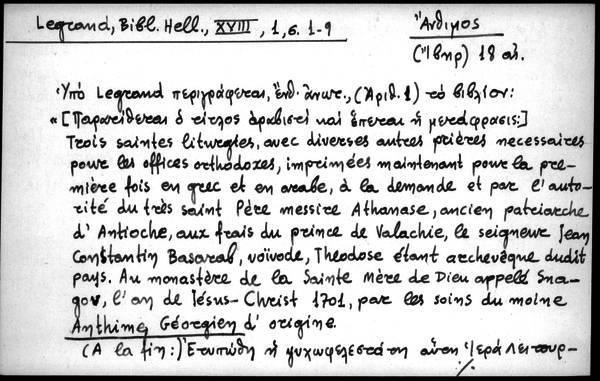 Legrand, Bibl. Hell., XVIII, 1, σ. 1-9
Ἄνθιμος
(Ἴβηρ) 18 αἰ.
Ὑπὸ Legrand περιγράφεται, ἔνθ. ἀνωτ., (Ἀριθ. 1) τὸ βιβλίον:
«[Παρατίθεται ὁ τίτλος ἀραβιστὶ καὶ ἕπεται ἡ μετάφρασις:]
Trois saintes liturgies, avec diverses autres prières necessaires
pour les offices orthodoxes, imprimées maintenant pour la pre-
mière fois en grec et en arabe, à la demande et par l'auto-
rité du très saint Père messire Athanase, ancien patriarche
d'Antioche, aux frais du prince de Valachie, le seigneur Jean
Constantin Basarab, voïvode, Theodose étant archevêque dudit
pays. Au monastère de la Sainte Mère de Dieu appelé Sna-
gov, l'an de Jésus-Christ 1701, par les soins du moine
Anthime, Géorgien d'origine.
(A la fin:) Ἐτυπώθη ἡ ψυχωφελεστάτη αὕτη Ἱερὰ Λειτουρ-